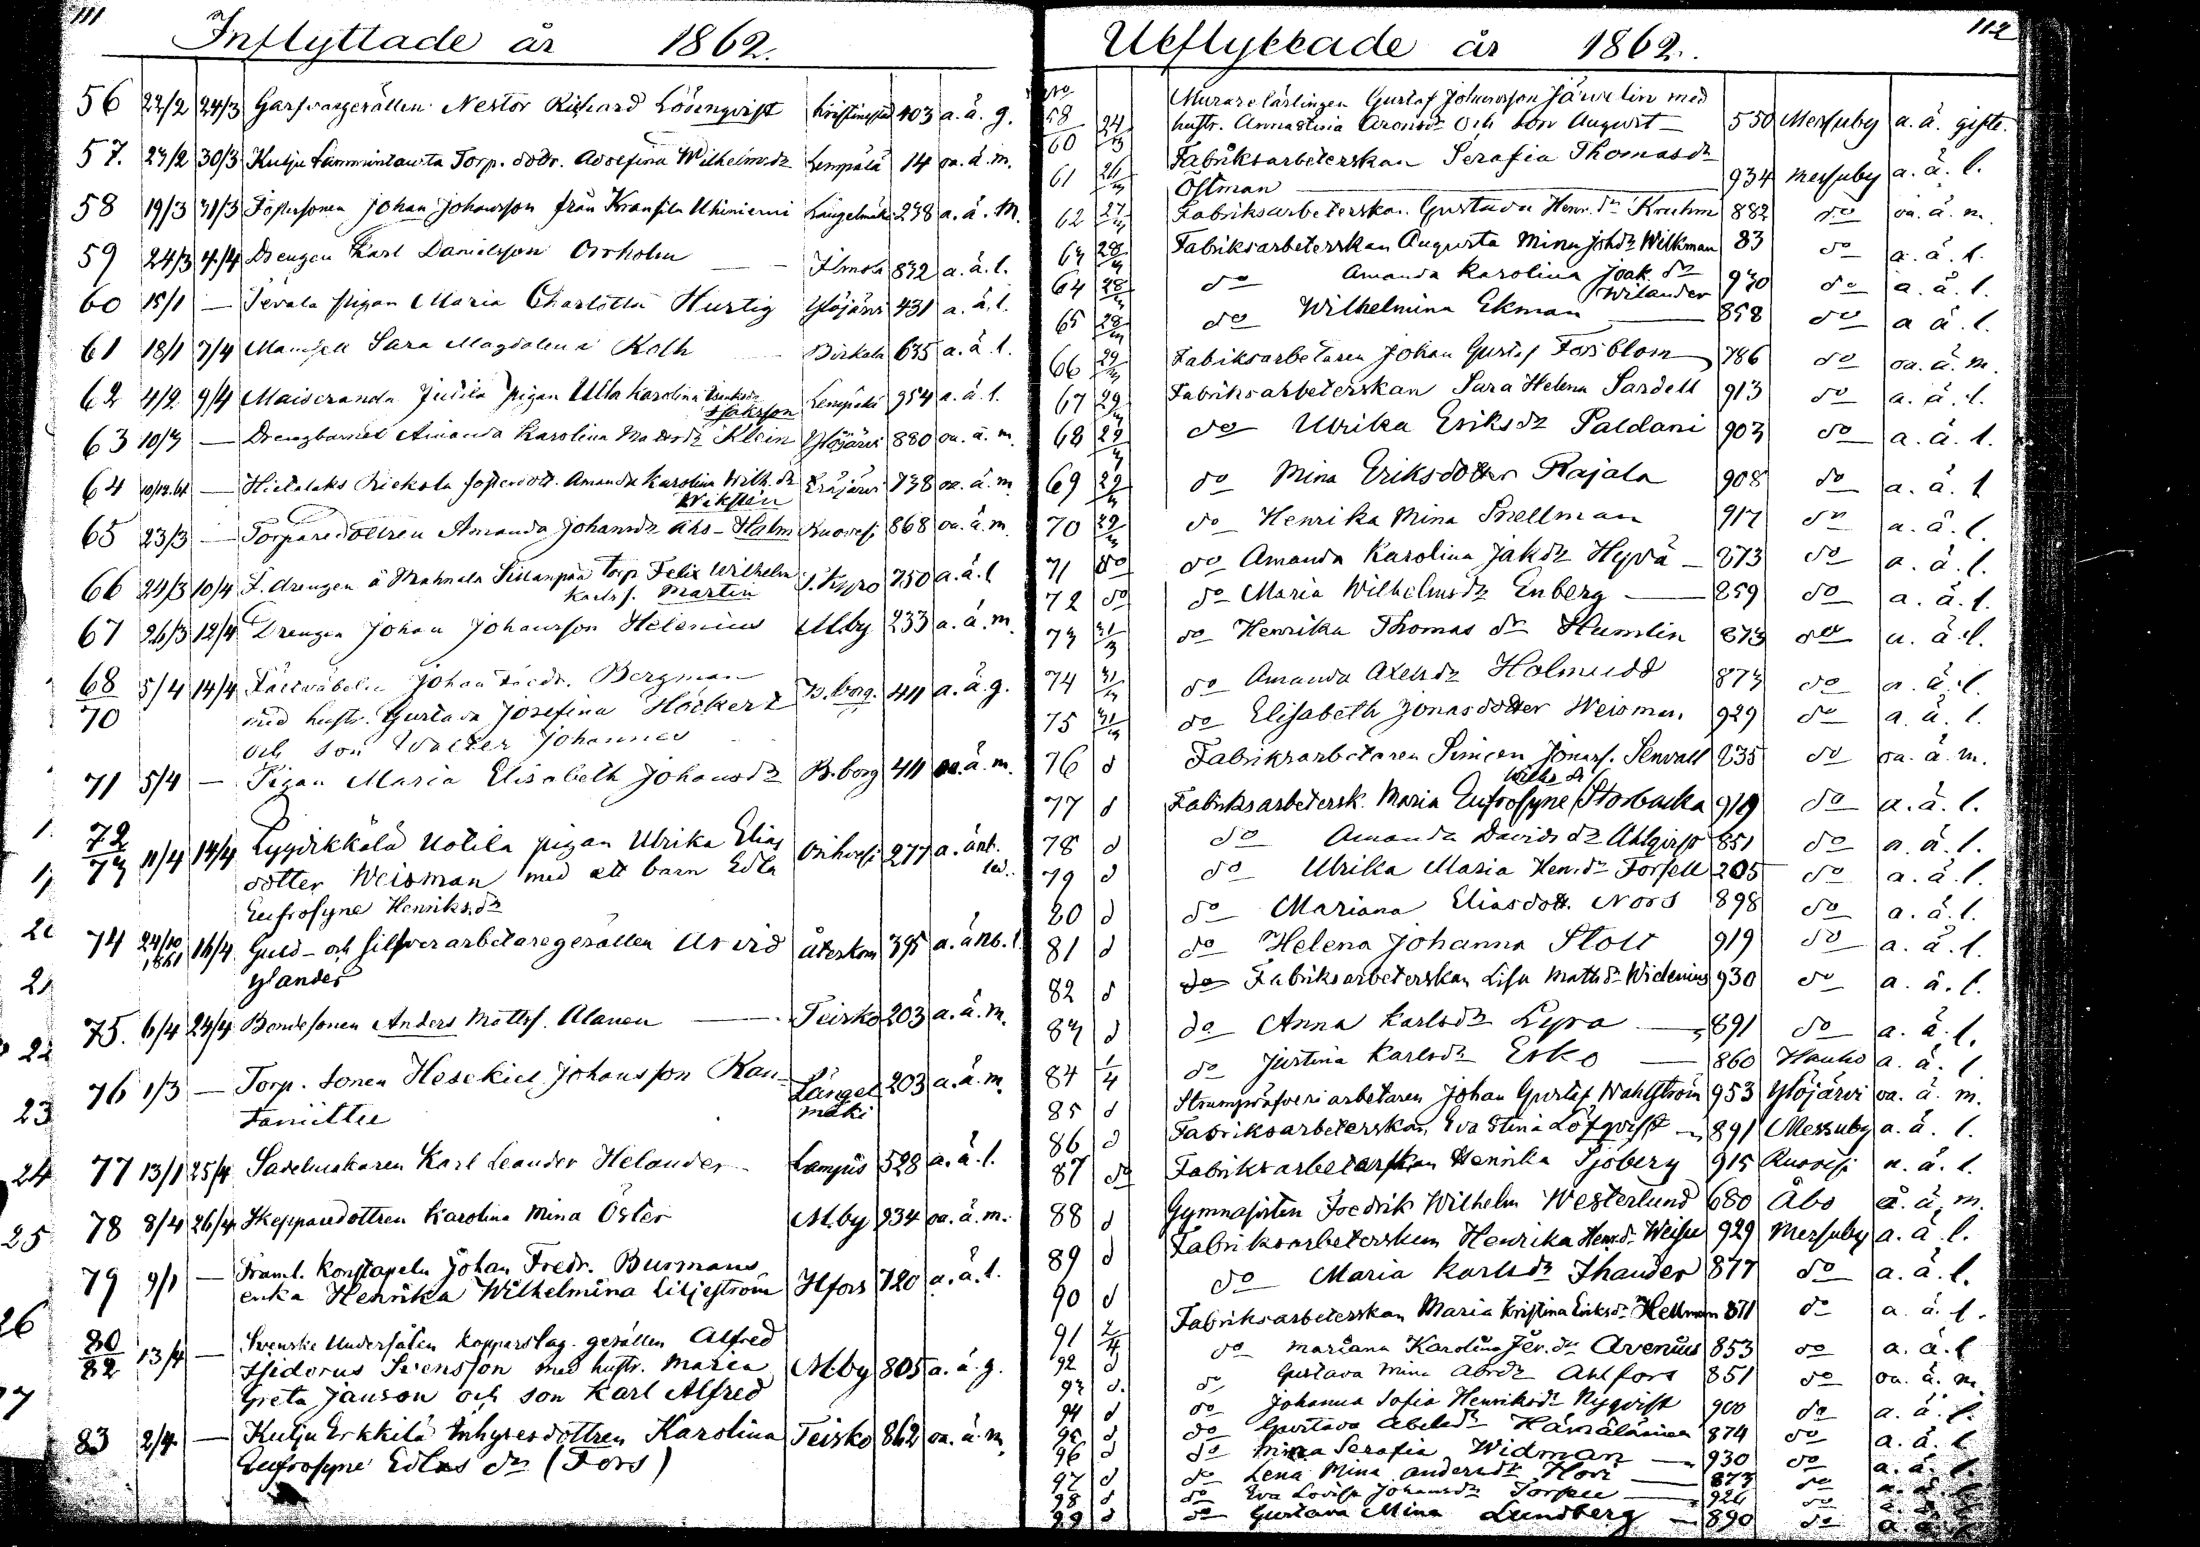 111
Inflyttade år 1862.
56 22/2 24/3 Garfvaregesällen Nestor Richard Löfenqvist Kristinestad 403 a. ä. g.
57. 23/2 30/3 Kulju Torp. dotr. Adolfina Wilhelmsdr Lempälä 14 oa. ä. m.
58 19/3 31/3 Johan Johansson från Längelmäki 238 a. ä. m.
59 24/3 4/4 Drengen Karl Danielsson Orrholm — 832 a. ä. l.
60 15/1 — pigan Maria Charlotta Hurtig Ylöjärvi 431 a. ä. l.
61 18/1 7/4 Mamsell Sara Magdalena Roth — Birkala 635 a. ä. l.
62 4/2 9/4 pigan Ulla Karolina Isaksdr
Isaksson Lempälä 954 a. ä. l.
63 10/3 — Amanda Karolina Klein Ylöjärvi 880 oa. ä. m.
64 10/12.61 — Amanda Karolina Wilh. dr
Wiksten 738 oa. ä. m.
65 23/3 — Torparedottren Amanda Johansdr Ahs-Holm Ruovesi 868 oa. ä. m.
66 24/3 10/4 F. drengen ä Torp. Felix Wilhelm
Karlss. Martin 750 a. ä. l
67 26/3 12/4 Drengen Johan Johansson Helenius M.by 233 a. ä. m.
68
70 5/4 14/4 Johan Fredr. Bergman
med hustr. Gustava Josefina Höckert B.borg. 411 a. ä. g.
och son Walter Johannes
71 5/4 — Pigan Maria Elisabeth Johansdr B.borg 411 oa. ä. m.
72
73 11/4 14/4 Lyydikkälä Uotila pigan Ulrika Elias
dotter Weisman med ett barn Edla Orihvesi 277 a. änt.
led.
Eufrosyne Henriks.dr
74 24/10
1861 16/4 Guld- och silfverarbetaregesällen Arvid återkom 395 a. ä Nb. l.
Ylander
75. 6/4 24/4 Bondesonen Anders Mattss. Alanen — Teisko 203 a. ä. m.
76 1/3 — Torp. sonen Hesekiel Johansson Längel
mäki 203 a. ä. m.
77 13/1 25/4 Sadelmakaren Karl Leander Helander Lampis 528 a. ä. l.
78 8/4 26/4 Skeppardottren Karolina Mina Öster M.by 234 oa. ä. m.
79 9/1 — Framl. konstapeln Johan Fredr. Burmans
enka Henrika Wilhelmina Liljeström Hfors 720 a. ä. l.
80
82 13/4 — Svenske Undersåten kopparslag. gesällen Alfred
Isidorus Svensson med hustr. Maria M.by 805 a. ä. g.
Greta Janson och son Karl Alfred
83 2/4 — Kulju Erkkilä Inhysesdottren Karolina Teisko 862 oa. ä. m.
Eufrosyne Edlas dr (Fors)
112
Utflyttade år 1862.
58 Murarelärlingen Gustaf Johansson Järvelin med
60 24/3 hustr. Annastina Aronsdr och son August — 550 Messuby a. ä. gifte.
61 Fabriksarbeterskan Serafia Thomasdr
Östman — 934 Messuby a. ä. l.
62 27/3 Fabriksarbeterskan Gustava Henr. dr Kruhm 882 do oa. ä. m.
63 28/3 Fabriksarbeterskan Augusta Mina Johdr Wilkman 83 do a. ä. l.
64 28/3 do Amanda Karolina Joak. dr
Wilander 930 do a. ä. l.
65 28/3 do Wilhelmina Ekman — 858 do a ä. l.
66 29/3 Fabiksarbetaren Johan Gustaf Forsblom 786 do oa. ä. m.
67 29/3 Fabriksarbeterskan Sara Helena Sardell 913 do a. ä. l.
68 29/3 do Ulrika Eriksdr Paldani 903 do a. ä. l.
69 29/3 do Mina Eriksdotter Rajala 908 do a. ä. l
70 29/3 do Henrika Mina Snellman 917 do a. ä. l.
71 do do Amanda Karolina Jakdr Hyvä — 873 do a. ä. l.
72 do do Maria Wilhelmsdr Enberg — 859 do a. ä. l.
73 31/3 do Henrika Thomas dr Humlin 873 do a. ä. l.
74 31/3 do Amanda Axelsdr Holmudd 873 do a. ä. l.
75 31/3 do Elisabeth Jonasdotter Weisman 929 do a. ä. l.
76 d Fabriksarbetaren Simeon Jonass. Senvall 235 do oa. ä. m.
77 d Fabriksarbetersk. Maria Eufrosyne Wilhs dr Storbacka 919 do a. ä. l.
78 d do Amanda Davids dr Ahlqvist 851 do a. ä. l.
79 d do Ulrika Maria Henr.dr Forsell 205 do a. ä. l.
80 d do Mariana Eliasdott. Nors 898 do a. ä. l.
81 d do Helena Johanna Stolt 919 do a. ä. l.
82 d do Fabriksarbeterskan Lisa Mattsdr Widenius 930 do a. ä. l.
83 d do Anna Karlsdr Lyra — 891 do a. ä. l.
84 1/4 do Justina Karlsdr Esko — 860 Hauho a. ä. l
85 d Strumpväfveriarbetaren Johan Gustaf Wahlström 953 Ylöjärvi oa. ä. m.
86 d Fabriksarbeterskan Eva Stina Löfqvist — 891 Messuby a. ä. l.
87 do Fabriksarbeterskan Henrika Sjöberg 915 Ruovesi a. ä. l.
88 d Gymnasisten Fredrik Wilhelm Westerlund 680 Åbo a. ä. m.
89 d Fabriksarbeterskan Henrika Henr.dr 929 Messuby a. ä. l.
90 d do Maria Karlsdr Thander 877 do a. ä. l.
91 2/4 Fabriksarbeterskan Maria Kristina Eriksdr Hellman 871 do a. ä. l.
92 d do Mariana Karolina Jer. dr Avenius 853 do a. ä. l
93 d. do Gustava Mina Abrdr Ahlfors 851 do oa. ä. m
94 d do Johanna Sofia Henriksdr Nyqvist 900 do a. ä. l.
95 d. do Gustava Abelsdr Hämäläinen 874 do a. ä. l
96 d do Mina Serafia Widman — 930 do a. ä. l.
97 d do Lena Mina Andersdr Horr — 873 do
98 d do Eva Lovisa Johansdr — 926 do
99 d do Gustava Mina Lundberg — 890 do